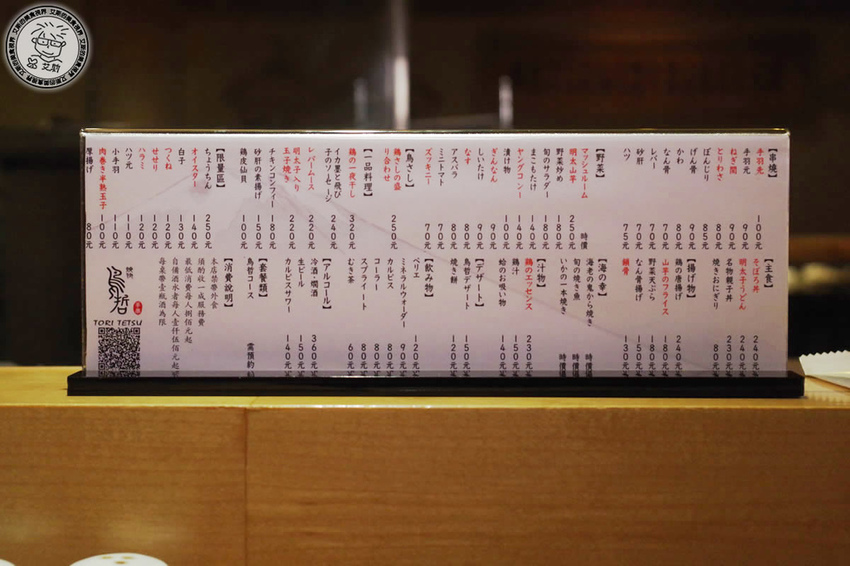 【串燒】
手羽先 100元
手羽元 90元
ねぎ間 90元
とりわさ 80元
ぼんじり 85元
げん骨 90元
かわ 80元
なん骨 70元
レバー 70元
砂肝 70元
ハツ 75元
【野菜】
マッシュルーム 時價
明太山芋 250元
野菜炒め 180元
旬のサラダー 180元
まこもたけ 140元
ヤングコーン 140元
漬け物 100元
ぎんなん 90元
しいたけ 90元
なす 80元
アスパラ 80元
ミニトマト 70元
ズッキーニ 70元
【鳥さし】
鶏さしの盛
り合わせ 250元
【一品料理】
鶏の一夜干し 320元
イカ墨と飛び
子のソーセージ 240元
レバームース 220元
明太子入り
玉子焼き 220元
チキンコンフィー 180元
砂肝の素揚げ 150元
鶏皮仙貝 150元
【限量區】
ちょうちん 250元
オイスター 140元
白子 130元
つくね 120元
せせり 120元
ハラミ 120元
ハツ元 110元
小手羽 110元
肉巻き半熟玉子 100元
厚揚げ 80元
【主食】
そぼろ丼 240元
明太子うどん 240元
名物親子丼 230元
焼きおにぎり 80元
【揚げ物】
鶏の唐揚げ 240元
山芋のフライス 180元
野菜天ぷら 180元
なん骨揚げ 150元
鎖骨 130元
【海の幸】
海老の鬼から焼き 時價
旬の焼き魚 時價
いかの一本焼き 時價
【汁物】
鶏のエッセンス 230元
鶏汁 150元
蛤のお吸い物 140元
【デザート】
鳥哲デザート 150元
焼き餅 120元
【飲み物】
ペリエ 120元
ミネラルウォーダー 90元
カルピス 80元
コーラー 80元
スプライート 80元
むき茶 60元
【アルコール】
冷酒・燗酒 360元
生ビール 150元
カルピスサワー 140元
【套餐類】
鳥哲コース 需預約
【消費說明】
本店禁帶外食
須酌收一成服務費
最低消費每人捌佰元起
自備酒水者每人壹仟伍佰元起
每桌帶壹瓶酒為限
燒烤
鳥哲
TORI TETSU
艾斯的美食視界
艾斯